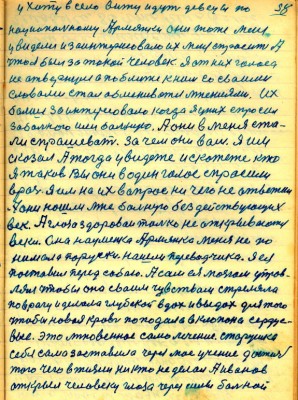 ухожу в село вижу идут девицы по
национальному Армянки они тоже меня
увидели и заинтересовало их меня спросить А
что я был за такой человек Я от них голоса
не отвернулся а поближе к ним со своими
словами стал обмениваться мнениями. Их
больше заинтересовало когда я у них спросил
за больного или больную. А они в меня ста-
ли спрашевать. Зачем они вам. Я им
сказал А тогда увидете и скажете кто
я таков Вы они в один голос спросили
врач. Я им на их вопрос ничего не ответил
Они нашли мне больную без действующих
век. А глаза здоровои только не открывают
веки. Она старушка Армянка меня не по
нимала порусски. нашли переводчика. Я её
поставил перед собою. А сам ей мозгом управ-
лял чтобы она своим чувством стреляла
по врагу и делала глубокой вдох и выдох для того
чтобы новая кровь попадала в клапона сердце-
вые. Это мгновенное само лечение. старушка
себя сама заставила через мое учение достичь
того чего в жизни никто не делал А Иванов
открыл человеку глаза через силы больной